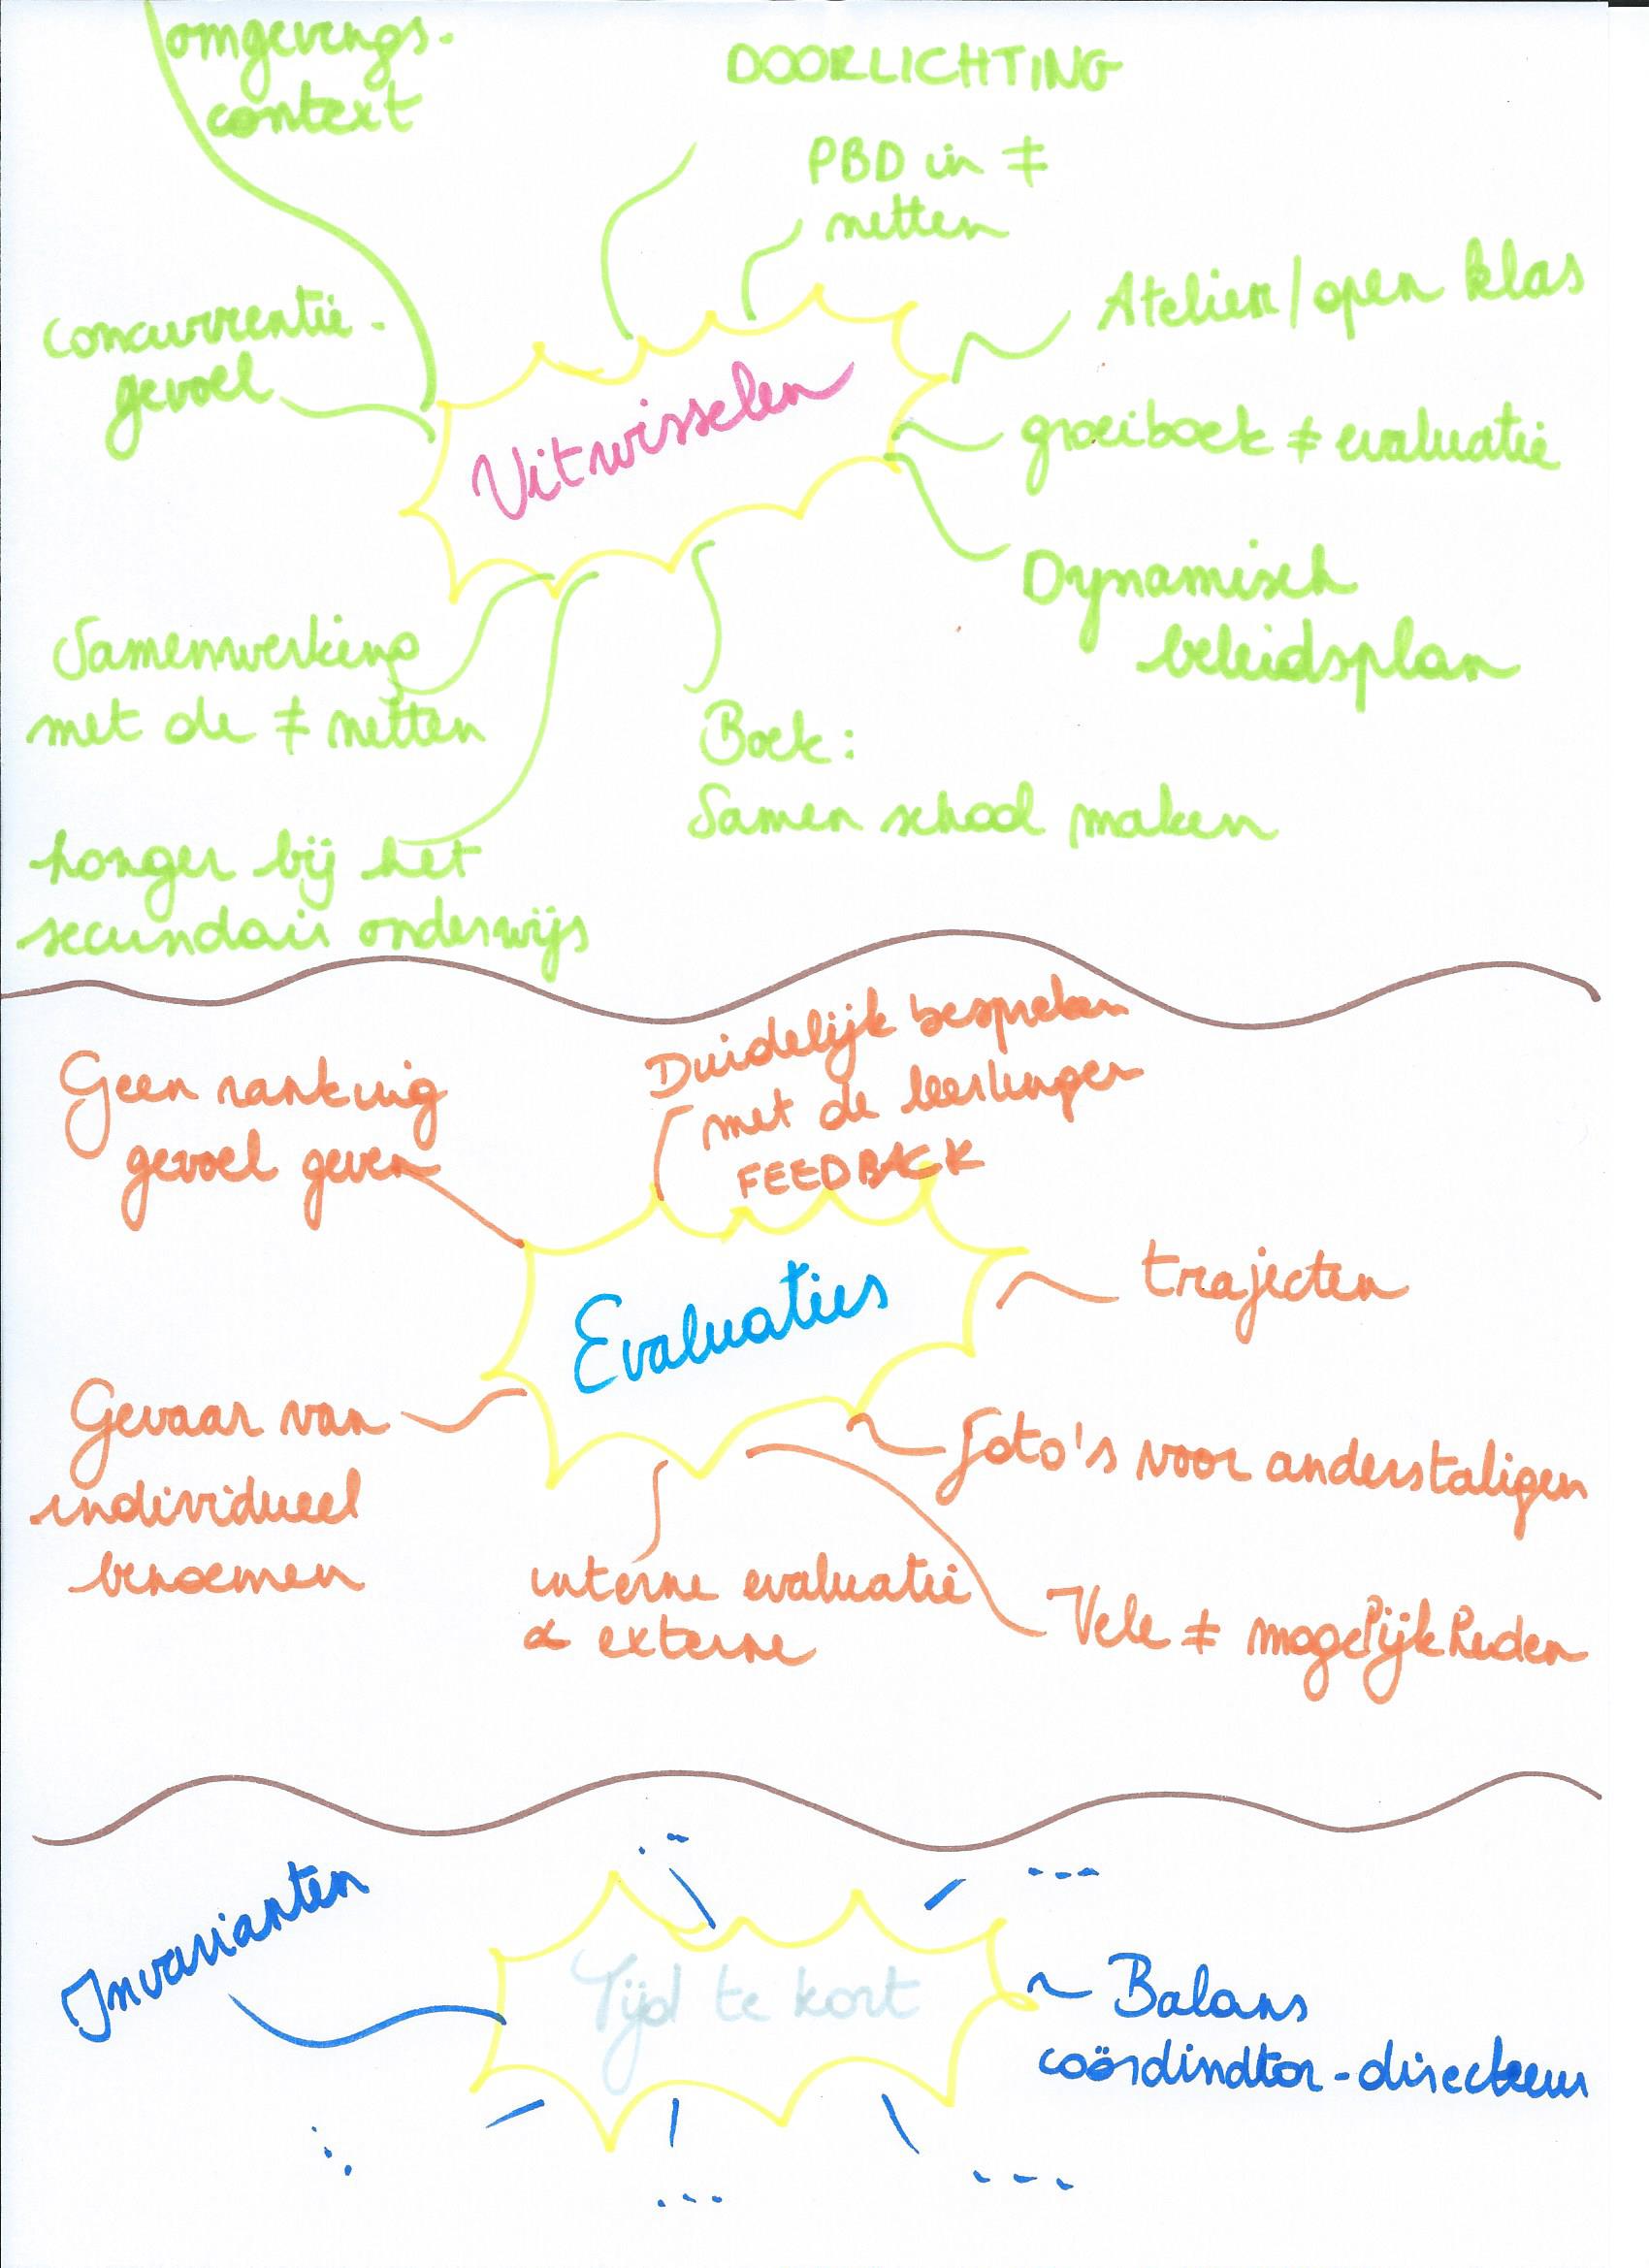 omgevings-
context
DOORLICHTING
PBD in ≠
netten
Atelier/open klas
concurrentie-
gevoel
Uitwisselen
groeiboek ≠ evaluatie
Dynamisch
beleidsplan
Samenwerking
met de ≠ netten
Boek:
Samen school maken
honger bij het
secundair onderwijs
Duidelijk bespreken
met de leerlingen
FEEDBACK
Geen ranking
gevoel geven
Evaluaties
trajecten
Gevaar van
individueel
benoemen
foto's voor anderstaligen
interne evaluatie
& externe
Vele ≠ mogelijkheden
Invarianten
...
---
Tijd te kort
~ Balans
coördinator-directeur
...
...
---